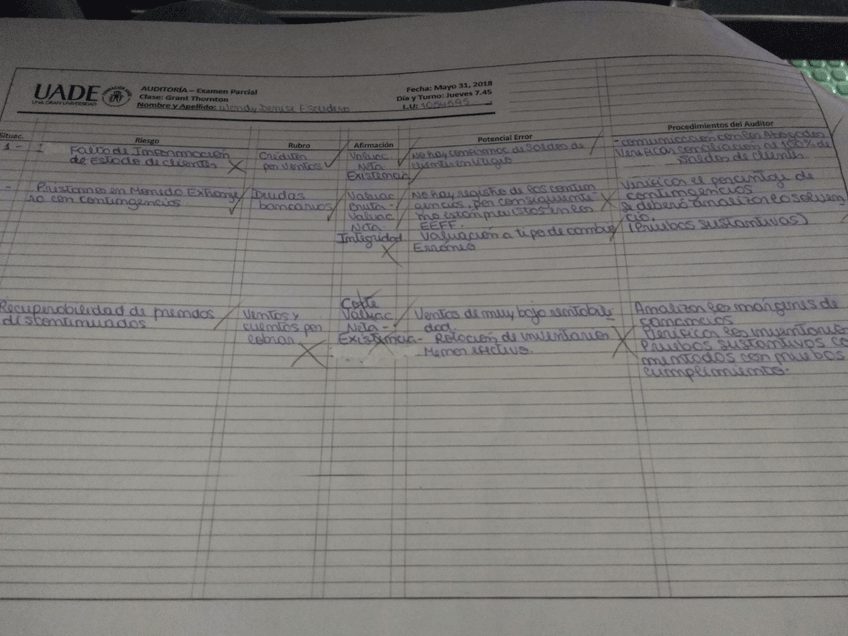 UADE
UNA GRAN UNIVERSIDAD
AUDITORÍA – Examen Parcial
Clase: Grant Thornton
Nombre y Apellido: Wendy Denise
Fecha: Mayo 31, 2018
Día y Turno: Jueves 7.45
L.U:
Situac. Riesgo Rubro Afirmación Potencial Error Procedimientos del Auditor
1 - Falta de Información
de Estado de clientes
Créditos
por ventas
Valuac
Neta
Existencia
No hay de saldos de
clientes
- comunicación con los Abogados
Verificar conciliación al 100% de
saldos de clientes
- Prestamos en Moneda Extranje
ra con contingencias
Deudas
bancarias
Valuac
Bruta -
Valuac
Neta -
Integridad
No hay registro de las contin
gencias, por consiguiente
no estan previstos en los
EEFF.
Valuación a tipo de cambio
Erróneo
Verificar el porcentaje de
contingencias
se deberá analizar
cio.
(Pruebas sustantivas)
Recuperabilidad de prendas
discontinuadas
Ventas y
cuentas por
cobrar
Corte
Valuac
Neta -
Existencia -
Ventas de muy baja rentabili
dad.
Rotación de inventarios
Menor efectivo.
Analizar los márgenes de
ganancias
Verificar los inventarios
Pruebas sustantivas co
mentadas con pruebas
cumplimiento.